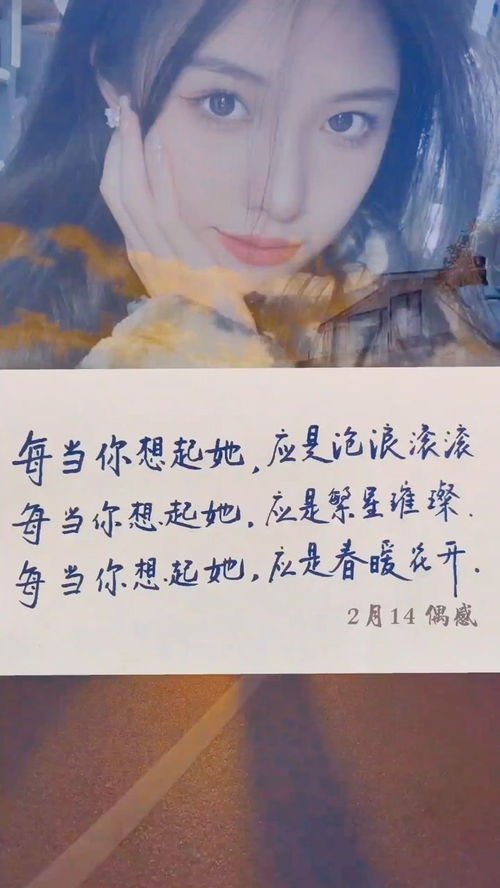 每当你想起她,应是泡浪滚滚
每当你想起她.应是繁星璀璨.
每当你想起她,应是春暖花开.
2月14 偶感